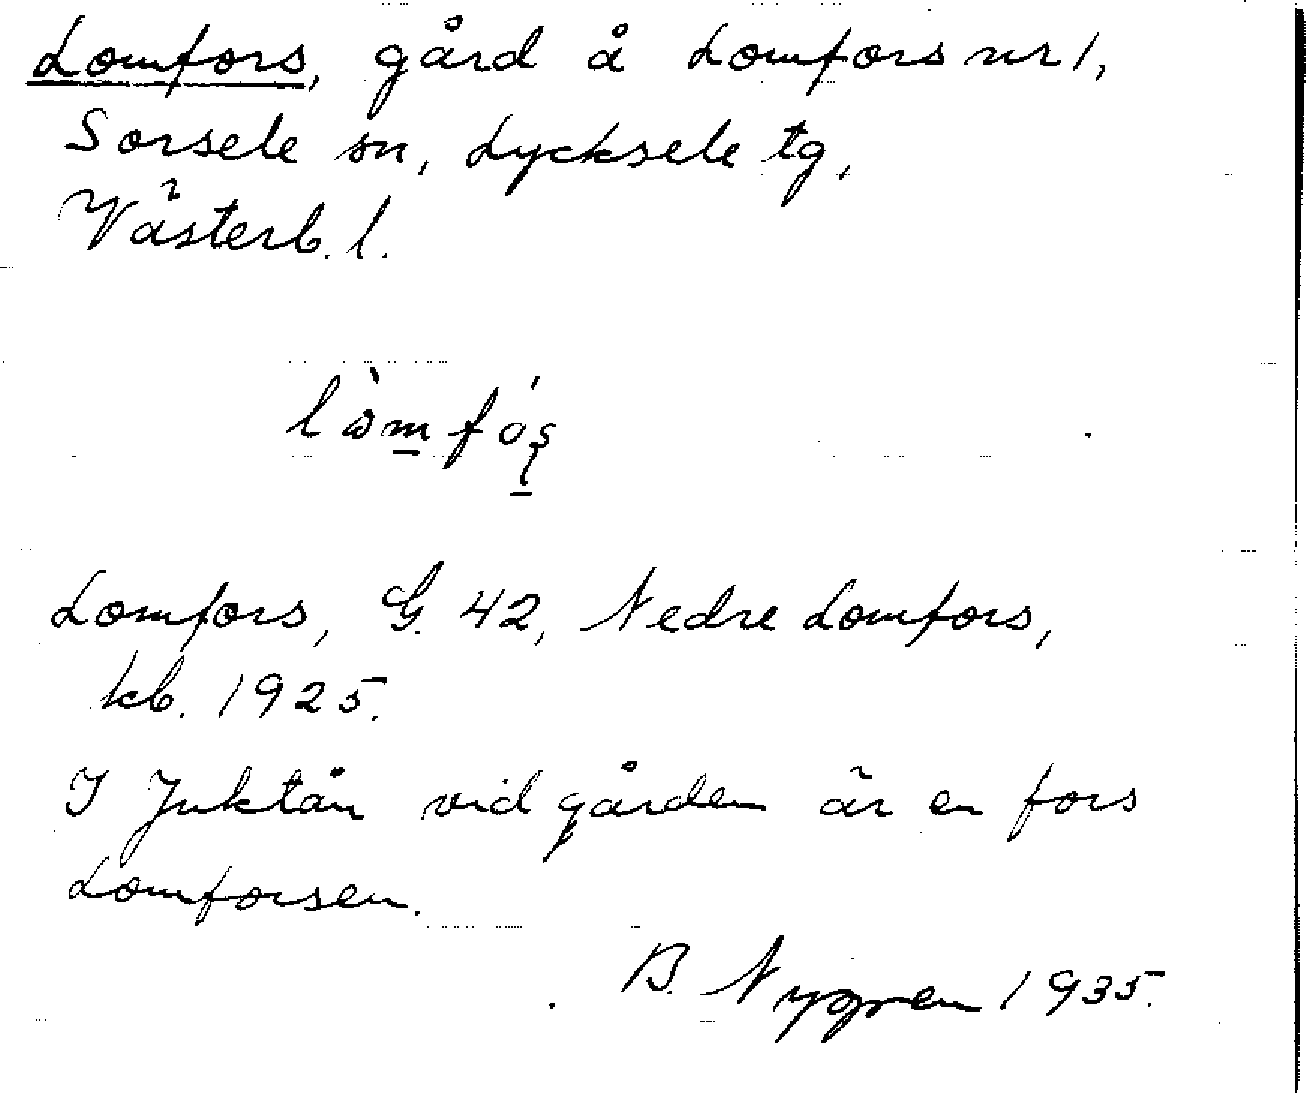 Lomfors, gård å Lomfors nr 1,
Sorsele sn, Lycksele tg,
Västerb. l.
Lomfors, G. 42, Nedre Lomfors,
kb. 1925.
I Juktån vid gården är en fors
Lomforsen.
B. Nygren 1935.